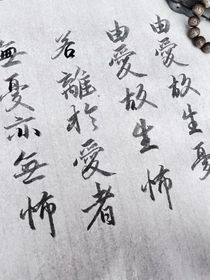 由愛故生憂
由愛故生怖
若離於愛者
無憂亦無怖